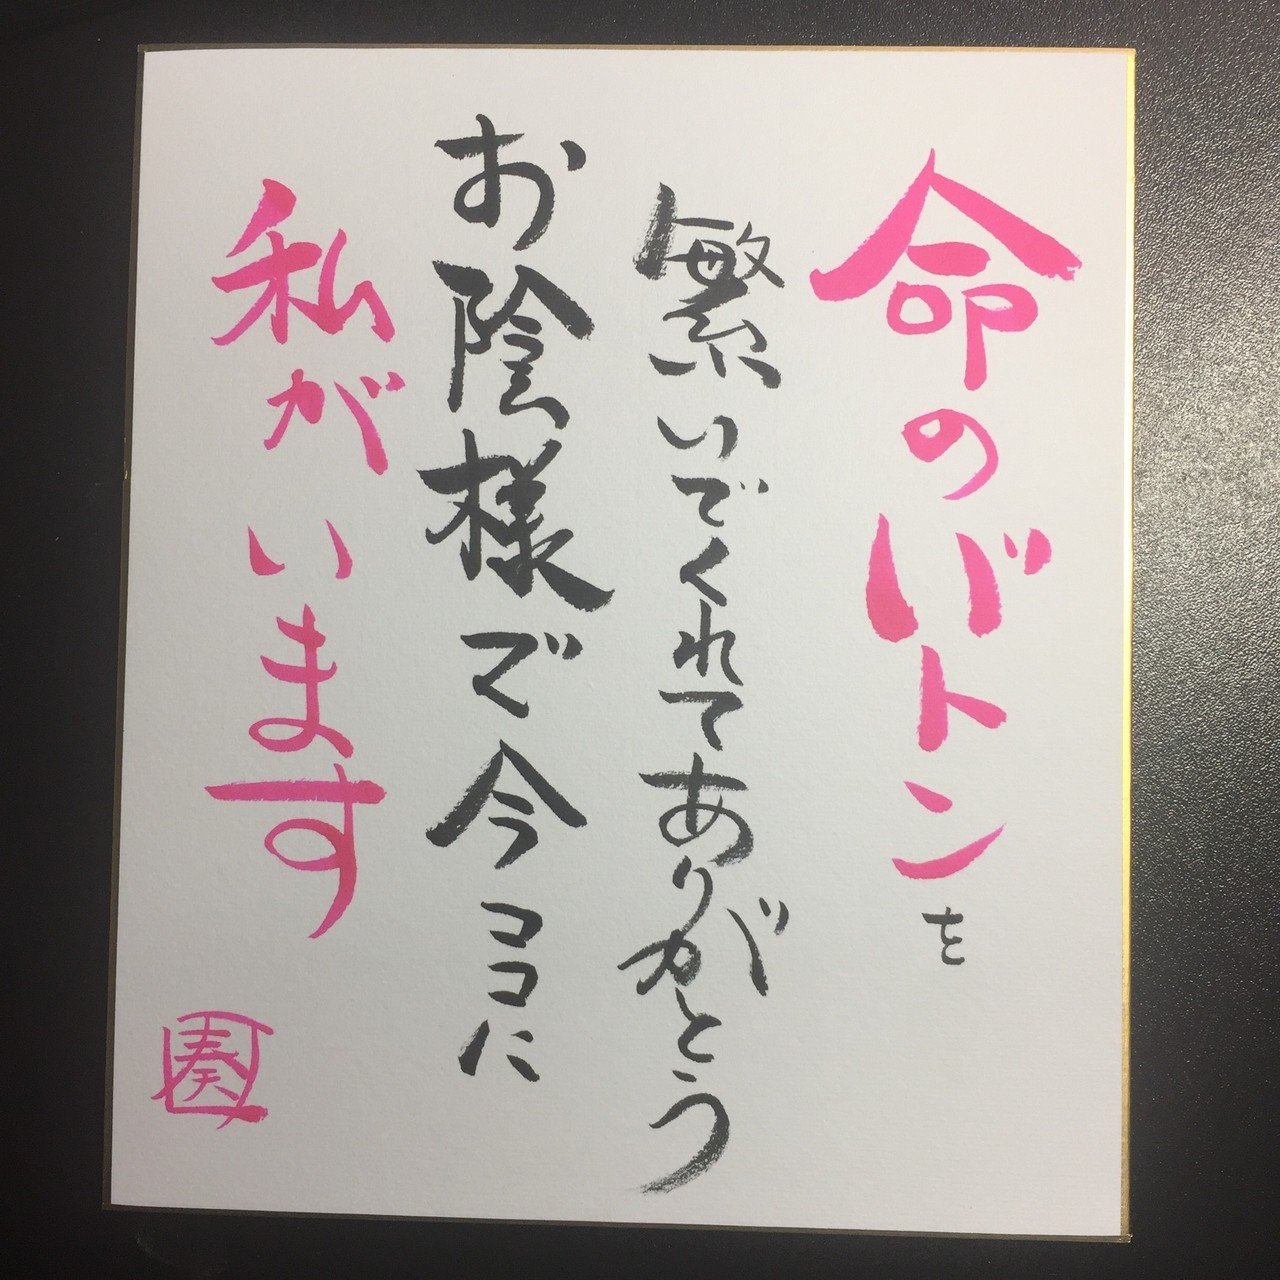 命のバトンを
繁いでくれてありがとう
お陰様で今ココに
私がいます
奏